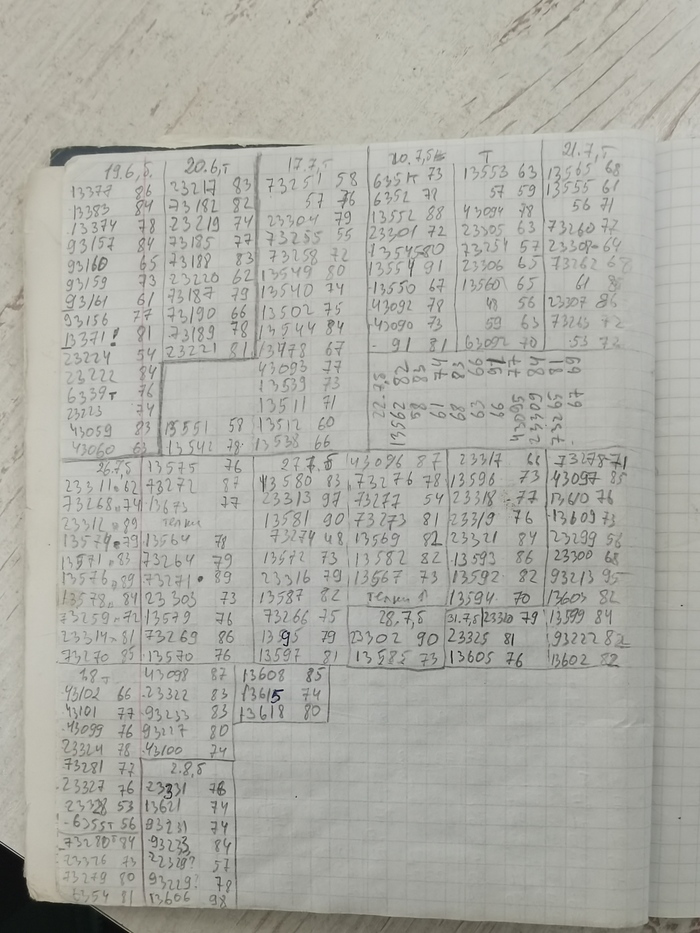 19.6,б
13377 86
13383 84
13374 78
93157 84
93160 65
93159 73
93161 61
93156 77
13371! 81
23224 54
23222 84
6339т 76
23223 74
43059 83
43060 63
20.6,т
23217 83
73182 82
23219 74
73185 77
73188 83
23220 62
73187 79
73190 66
73189 78
23221 81
13551 58
13542 78
17.7,б
73251 58
57 76
23304 79
73255 55
73258 72
13549 80
13540 74
13502 75
13544 84
13478 67
43093 77
13539 73
13511 71
13512 60
13538 66
20.7,5
635т 73
6352 78
13552 88
23301 72
13545 80
13554 91
13550 67
43092 78
43090 73
- 91 81
Т
13553 63
57 59
43094 78
23305 63
73254 57
23306 65
13560 65
48 56
59 63
63092 70
21.7,т
13565 68
13555 61
56 71
73260 72
23308 64
73262 68
61 85
23307 86
73263 72
53 72
22.7,5
13562 82
58 83
61 74
68 83
63 66
66 91
43095 77
23309 84
73265 81
- 67 69
26.7,5
23311 62
73268 74
23312 89
13574 79
13571 83
13576 89
13578 84
73259 72
23314 81
73270 85
13575 76
73272 87
13673 77
телки
13564 78
73264 79
73271 89
23303 73
13579 76
73269 86
13570 76
27.7.5
13580 83
23313 97
13581 90
73274 48
13572 73
23316 79
13587 82
73266 75
13595 79
13597 81
43096 87
73276 78
73277 54
73273 81
13569 82
13582 82
13567 73
телки
28.7,5
23302 90
13585 73
23317 66
13596 73
23318 77
23319 76
23321 84
13593 86
13592 82
13594 70
31.7,5 23320 79
23325 81
13605 76
73278 71
43097 85
13610 76
13609 73
23299 56
23300 68
93213 95
13603 82
13599 84
93222 82
13602 82
1.8 т
43102 66
43101 77
43099 76
23324 78
73281 77
23327 76
23328 53
6355т 56
73280 84
23326 73
73279 80
6354 81
43098 87
23322 83
93233 83
93227 80
43100 74
2.8,5
23331 76
13621 74
93231 74
93233 84
22329? 57
93229? 78
13606 98
13608 85
13615 74
13618 80